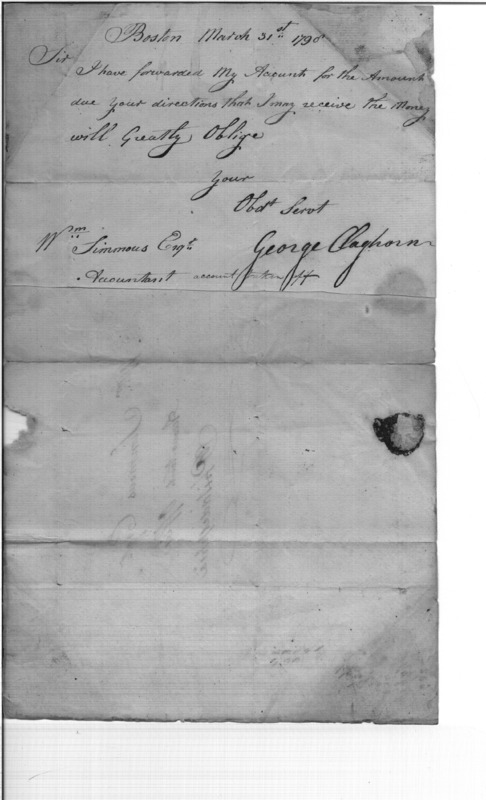 Boston March 31st 1798
Sir
I have forwarded My Accunts for the Amount
due your directions that I may receive the Money
will Greatly Oblige
Your
Obdt Servt
Wm Simmons Esqr George Claghorn
Accountant account